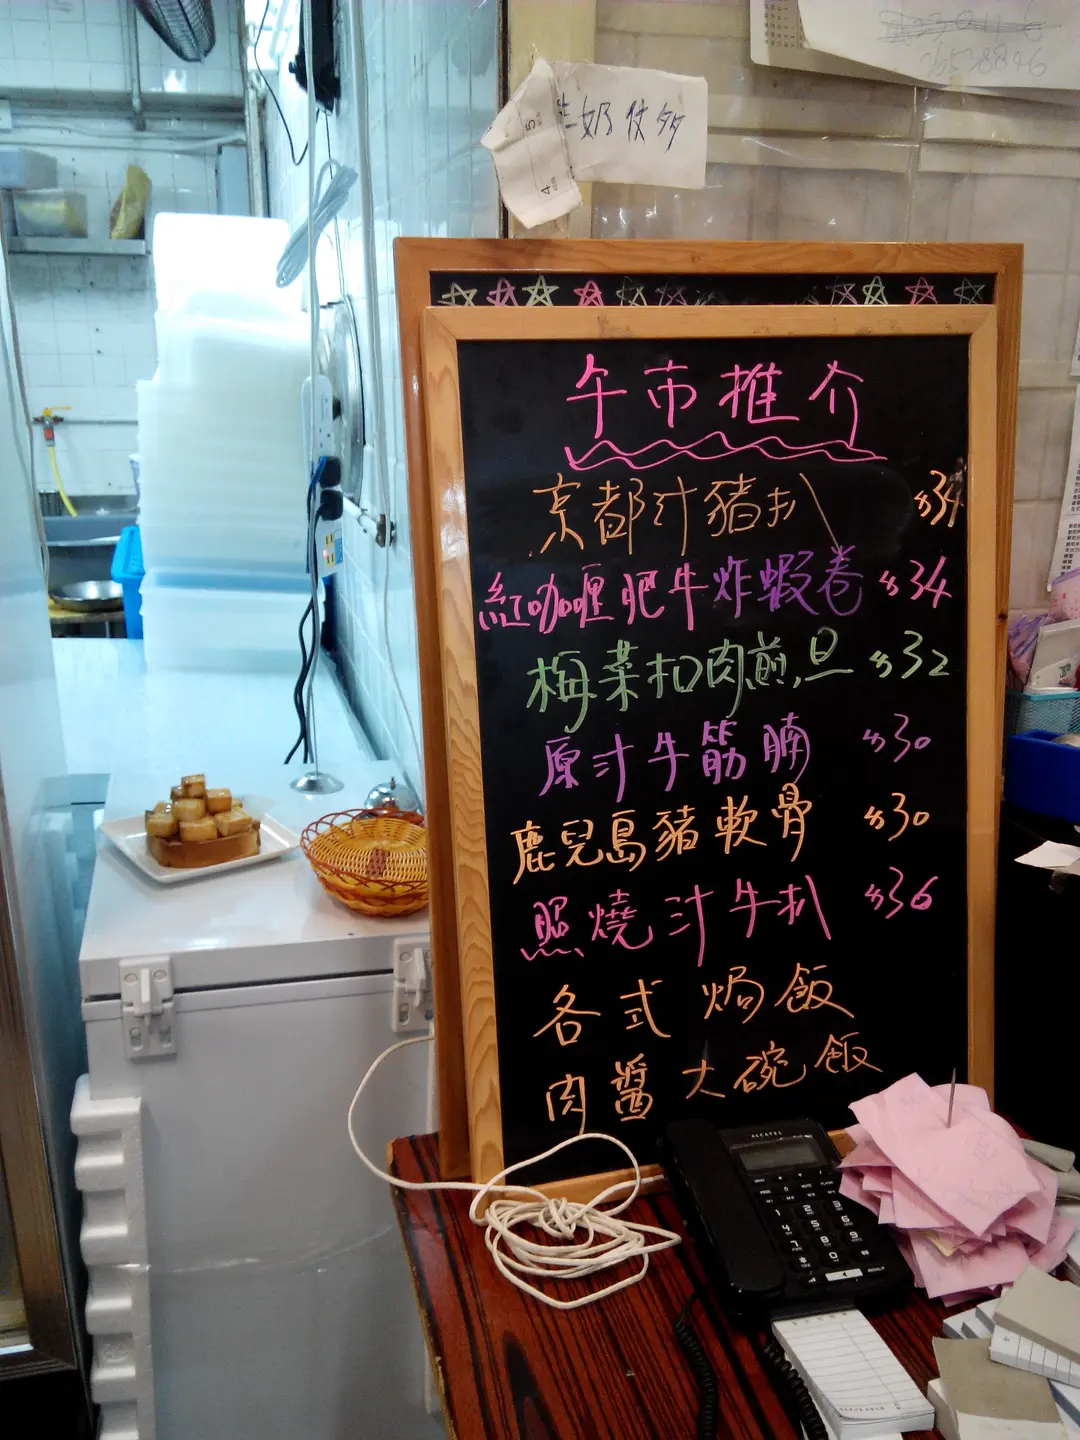 奶伎多
26538846
午市推介
京都汁豬扒 $34
紅咖喱肥牛炸蝦卷 $34
梅菜扣肉煎旦 $32
原汁牛筋腩 $30
鹿兒島豬軟骨 $30
照燒汁牛扒 $36
各式焗飯
肉醬大碗飯
ALCATEL